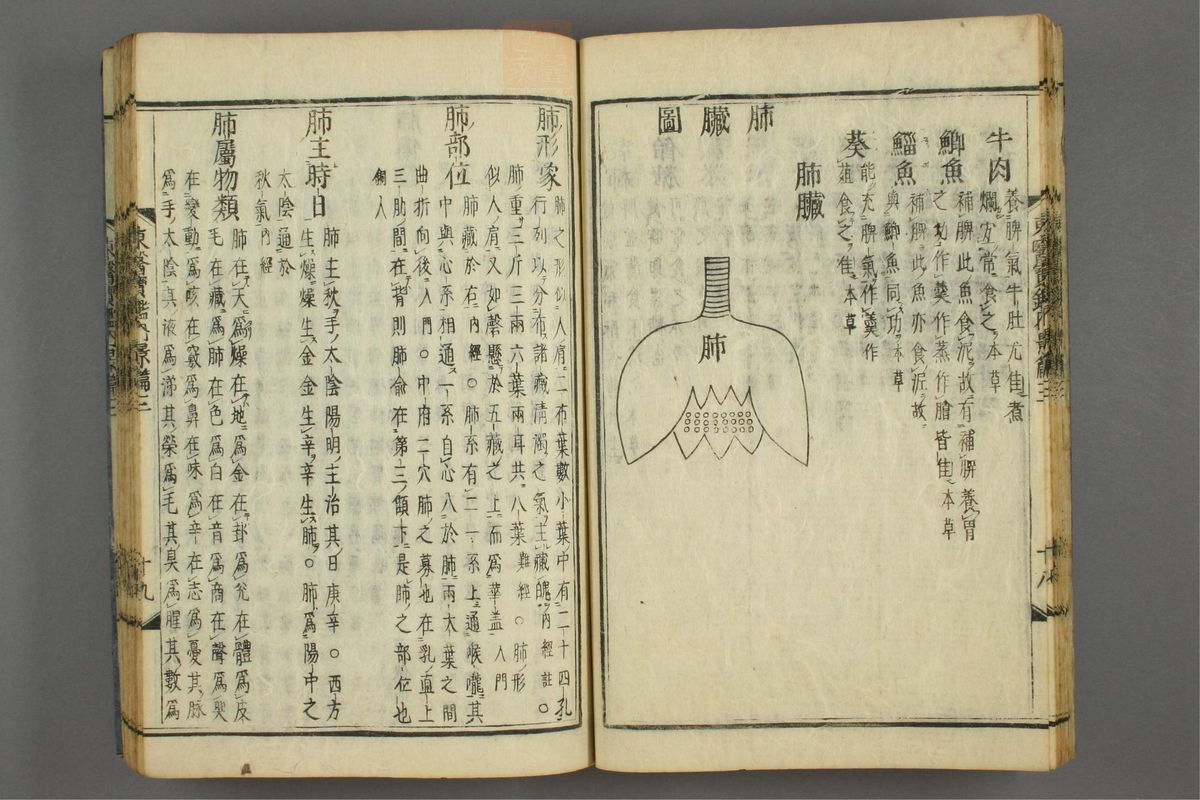 牛肉
養脾氣牛肚尤佳煮
爛宜常食之本草
鯽魚
補脾此魚食泥故有補脾養胃
之功作羹作蒸作膾皆佳本草
鯔魚
補脾此魚亦食泥故
與鯽魚同功本草
葵
能充脾氣作羹作
葅食之佳本草
肺臟
肺臟圖
肺
十八
肺形象
肺之形似人肩二布葉數小葉中有二十四孔
行列以分布諸藏淸濁之氣主藏魄內經註○
肺重三斤三兩六葉兩耳共八葉難經○肺形
似人肩又如磬懸於五藏之上而爲華盖入門
肺部位
肺藏於右內經○肺系有二一系上通喉嚨其
中與心系相通一系自心入於肺兩大葉之間
曲折向後入門○中府二穴肺之募也在乳直上
三肋間在背則肺兪在第三顀下是肺之部位也
銅人
肺主時日
肺主秋手太陰陽明主治其日庚辛○西方
生燥燥生金金生辛辛生肺○肺爲陽中之
太陰通於
秋氣內經
肺屬物類
肺在天爲燥在地爲金在卦爲兊在體爲皮
毛在藏爲肺在色爲白在音爲商在聲爲哭
在變動爲咳在竅爲鼻在味爲辛在志爲憂其脉
爲手太陰其液爲涕其榮爲毛其臭爲腥其數爲
東醫寶鑑內景篇三
十九